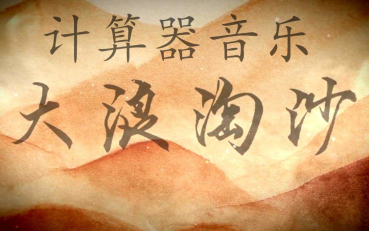 计算器音乐
大浪淘沙